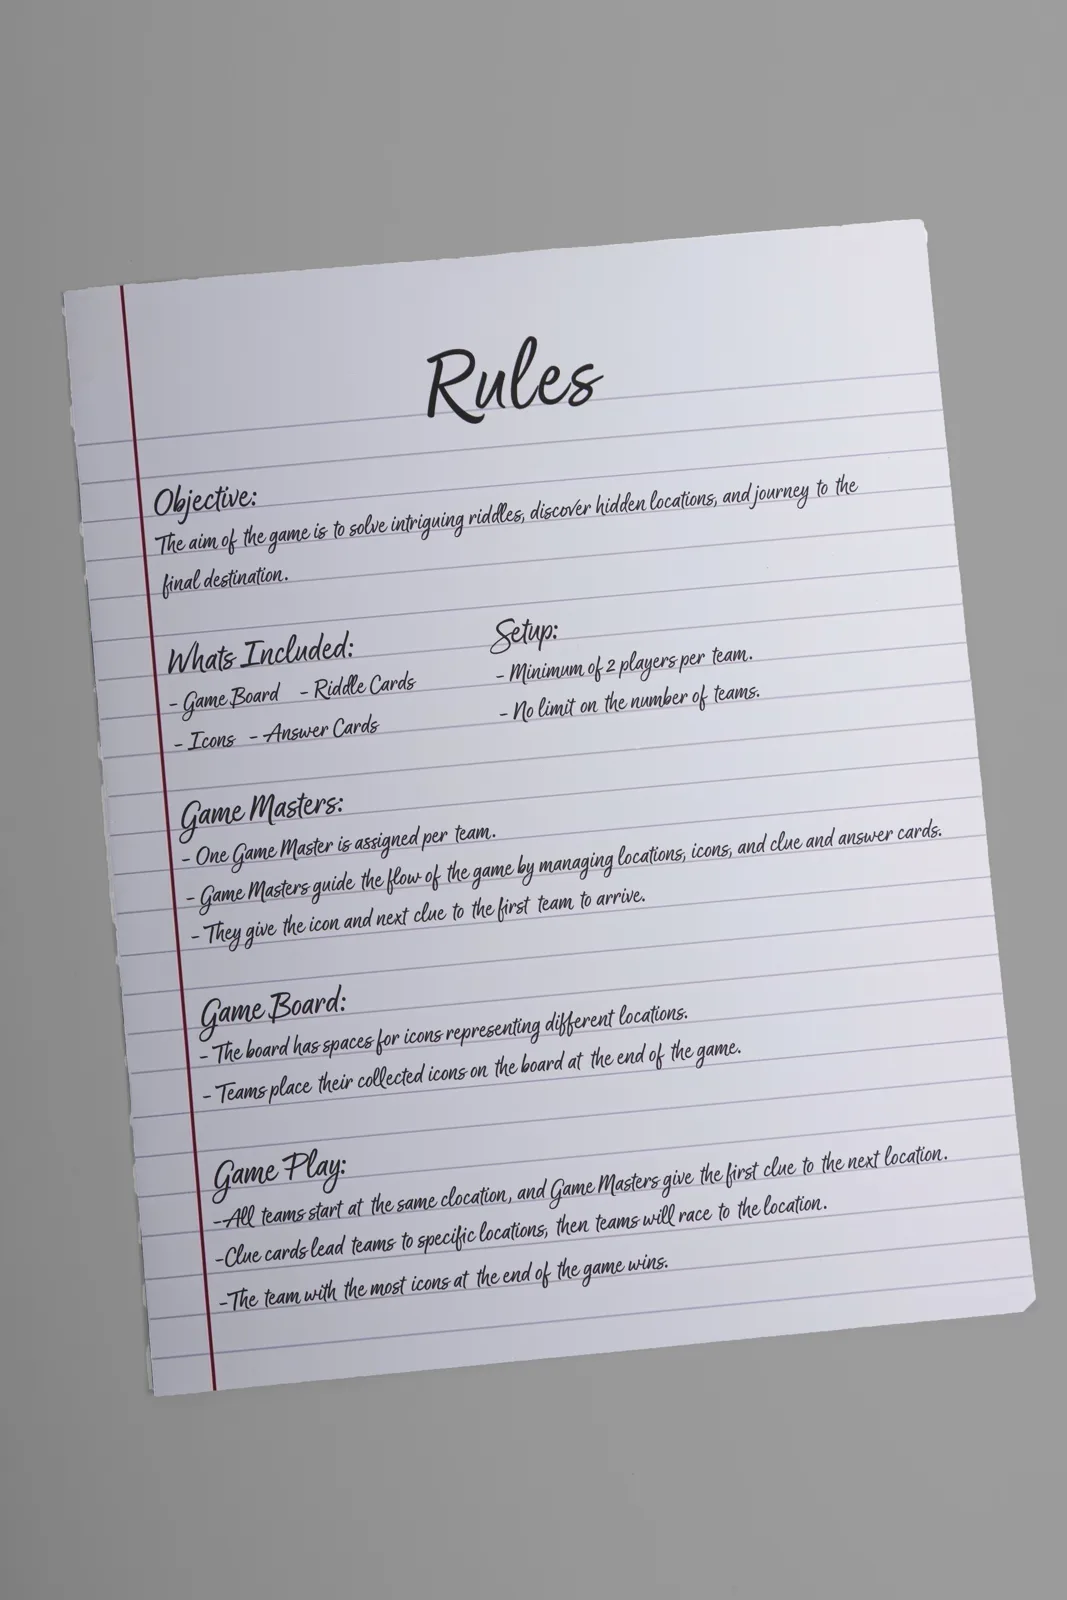 Rules
Objective:
The aim of the game is to solve intriguing riddles, discover hidden locations, and journey to the
final destination.
Whats Included:
- Game Board - Riddle Cards
- Icons - Answer Cards
Setup:
- Minimum of 2 players per team.
- No limit on the number of teams.
Game Masters:
- One Game Master is assigned per team.
- Game Masters guide the flow of the game by managing locations, icons, and clue and answer cards.
- They give the icon and next clue to the first team to arrive.
Game Board:
- The board has spaces for icons representing different locations.
- Teams place their collected icons on the board at the end of the game.
Game Play:
-All teams start at the same clocation, and Game Masters give the first clue to the next location.
-Clue cards lead teams to specific locations, then teams will race to the location.
-The team with the most icons at the end of the game wins.